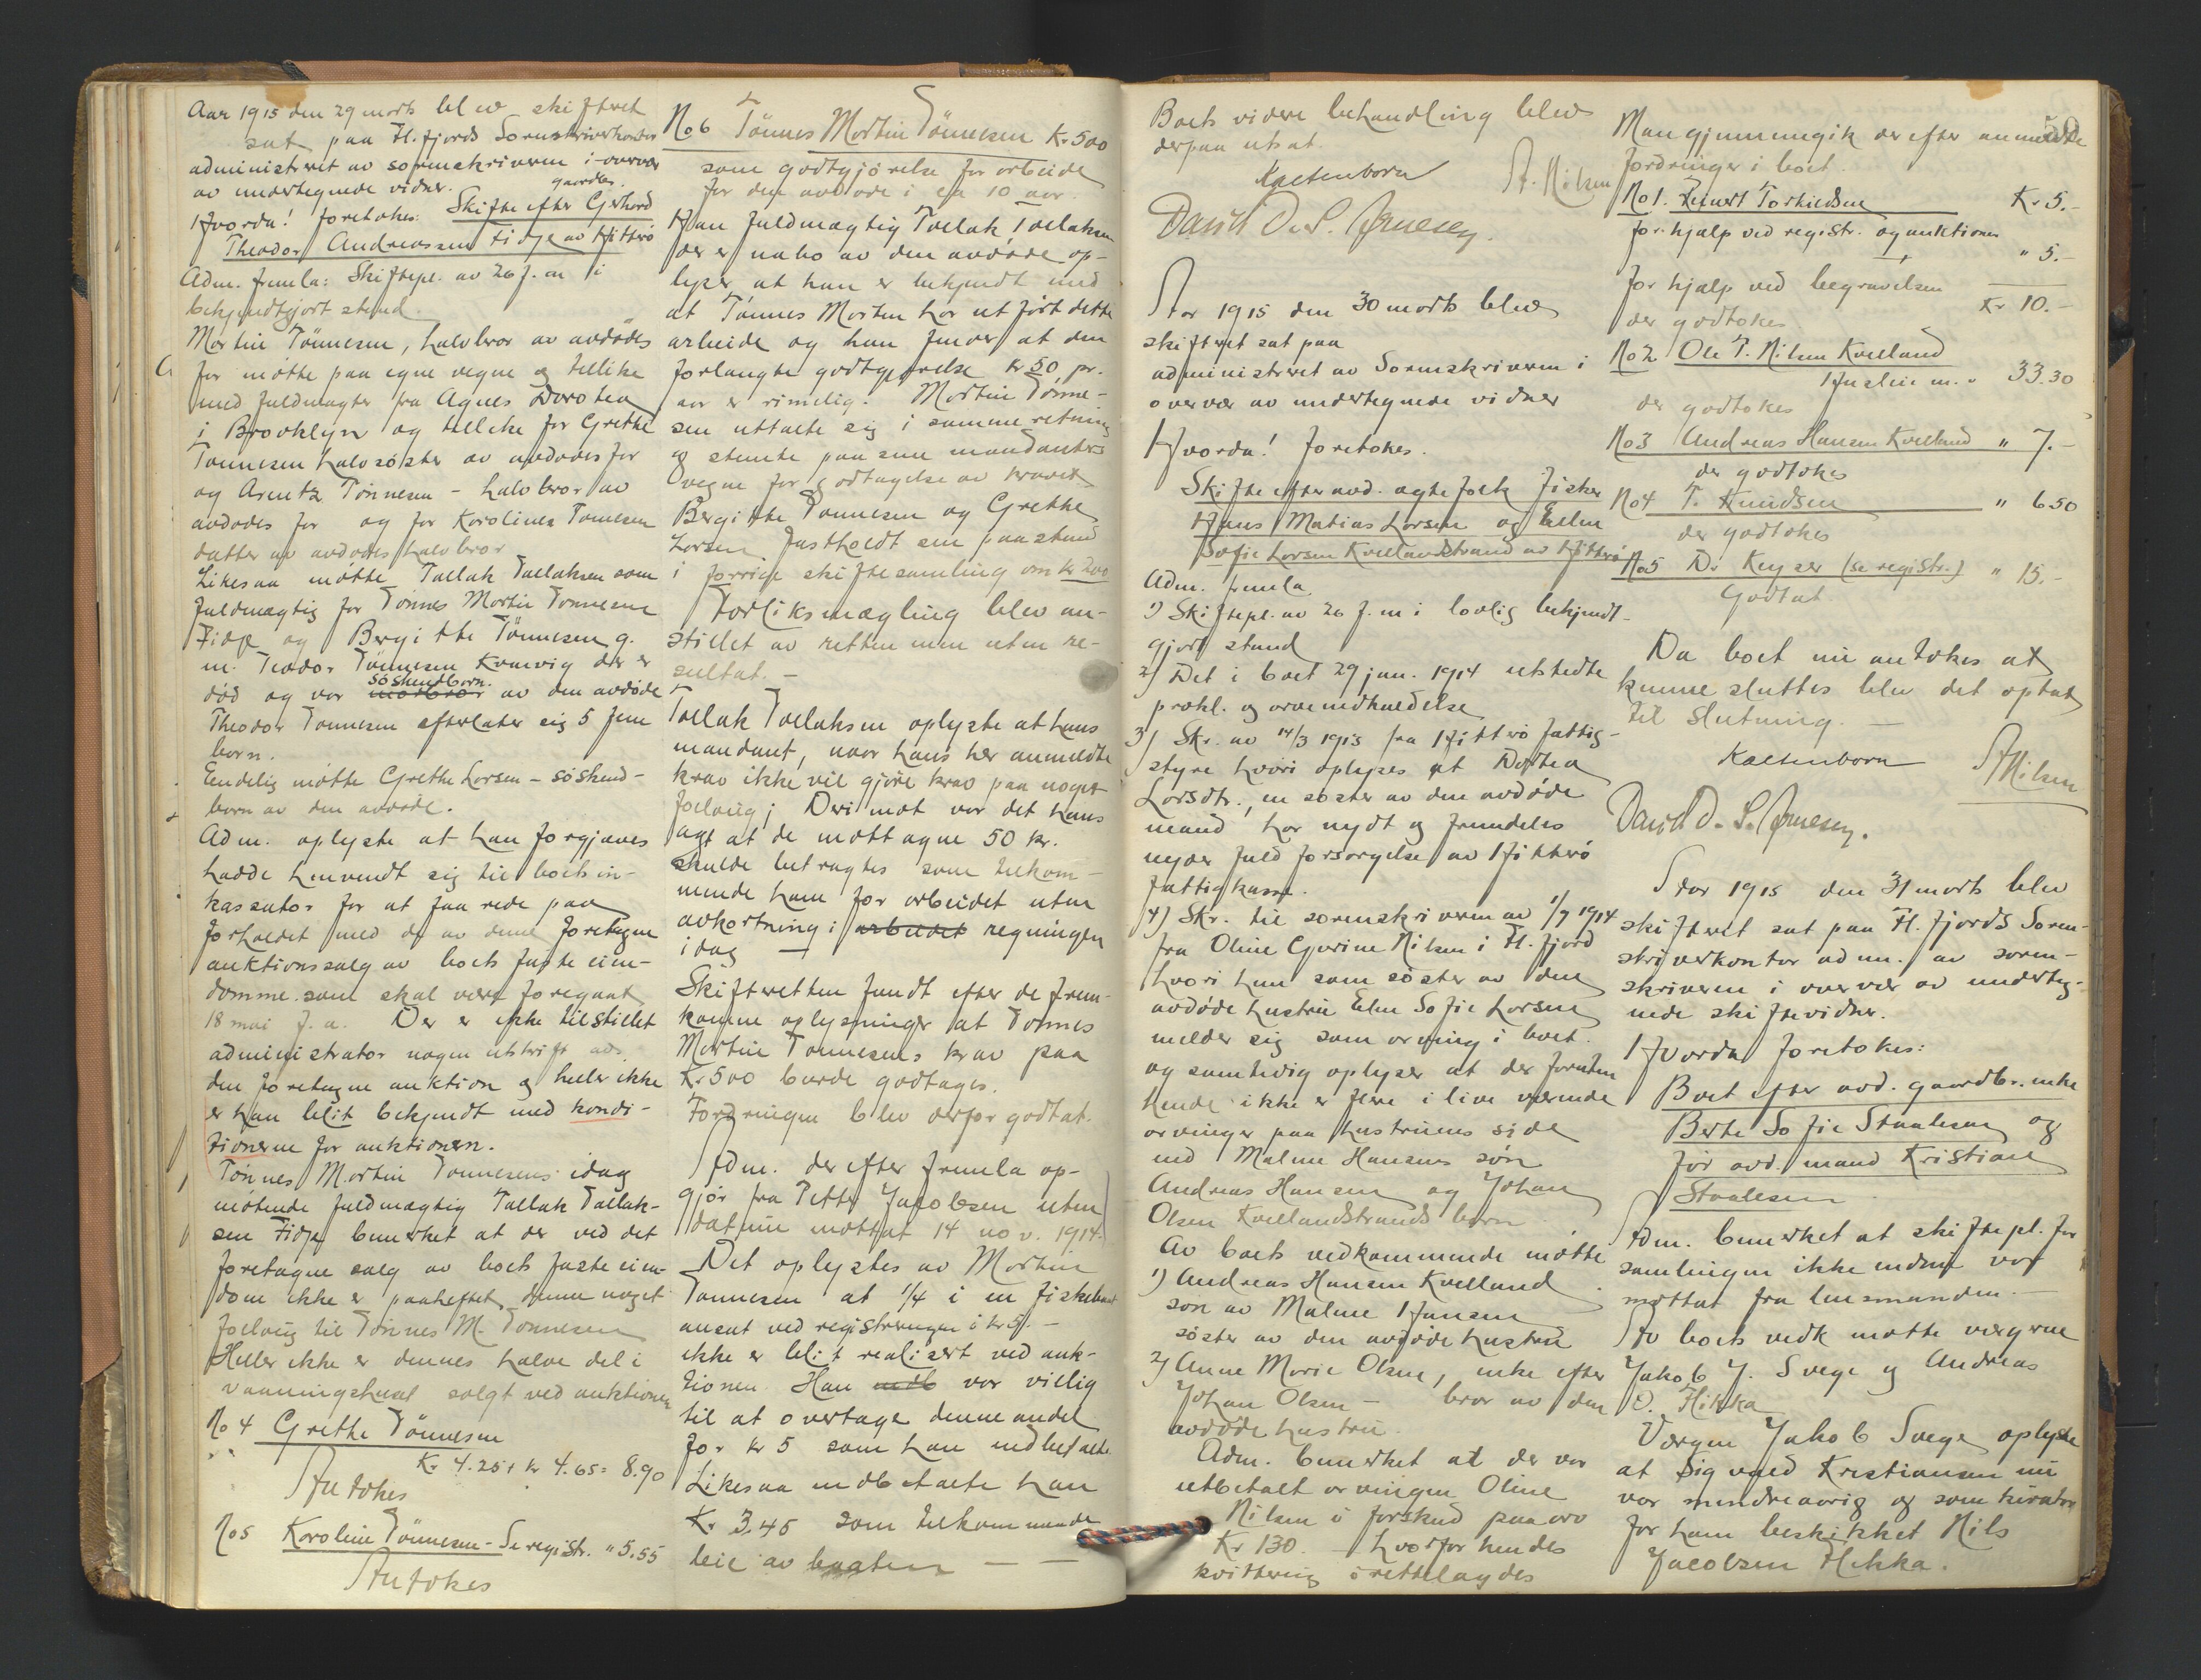 Aar 1915 den 29 marts blev skifteret
sat paa Fl.fjords Sorenskriverkontor
administreret av sorenskriveren i overvær
av undertegnede vidner.
gaardbr.
Hvorda! foretokes: Skifte efter Gerhard
Theodor Andreassen Fidje av Hitterø
Adm. fremla: Skiftepl. av 26 f. m i
bekjendtgjort stand.
Martin Tönnesen, halvbror av avdødes
far møtte paa egne vegne og tillike
med fuldmagter fra Agnes Dorothea
i Brooklyn og tillike for Grethe
Tønnesen halvsøster av avdødes far
og Arentz Tönnesen - halvbror av
avdødes far og for Karolines Tønnesen
datter av avdødes halvbror
Likesaa møtte Tallak Tallaksen som
fuldmægtig for Tönnes Martin Tønnesen
Fidje og Bergitte Tönnesen g.
m. Teodor Tönnesen Kvanvig der er
søskendbarn.
død og var morbror av den avdøde
Theodor Tønnesen efterlater sig 5 fem
barn.
Eendelig møtte Grethe Larsen - søskend-
barn av den avdøde.
Adm. oplyste at han forgjæves
hadde henvendt sig til boets in-
kassator for at faa rede paa
forholdet med de av denne foretagne
auktionssalg av boets faste eien-
domme som skal være foregaat
18 mai f. a. Der er ikke tilstillet
administrator nogen utskrift av
den foretagne auktion og heller ikke
er han blit bekjendt med kondi-
tionerne for auktionen.
Tönnes Martin Tønnesens idag
møtende fuldmægtig Tallak Tallak-
sen Fidje bemerket at der ved det
foretagne salg av boets faste eien-
dom ikke er paaheftet denne noget
føderaad til Tønnes M. Tønnesen
Heller ikke er dennes halve del i
vaaningshuset solgt ved auktionen
No 4 Grethe Tönnesen
Kr 4.25 + kr 4.65 = 8.90
Antokes
No 5 Karoline Tönnesen - Se registr. " 5.55
Antokes
No 6 Tönnes Martin Tönnesen Kr 500
som godtgjörelse for arbeide
for den avdøde i ca 10 aar.
Han fuldmægtig Tallak Tallaksen
der er nabo av den avdøde op-
lyser at han er bekjendt med
at Tönnes Martin har utført dette
arbeide og han finder at den
forlangte godtgjørelse kr 50 pr.
aar er rimelig. Martin Tønne-
sen uttalte sig i samme retning
og stemte paa sine mandanters
vegne for godtagelse av kravet
Bergitte Tønnesen og Grethe
Larsen fastholdt sin paastand
i forrige skiftesamling om kr 200
Forliksmægling blev an-
stillet av retten men uten re-
sultat. -
Tallak Tallaksen oplyste at hans
mandant, naar hans her anmeldte
krav ikke vil gjøre krav paa noget
føderaad; Derimot var det hans
agt at de mottagne 50 kr.
skulde betragtes som tilkom-
mende ham for arbeidet uten
avkortning i arbeidet regningen
idag
Skifteretten fandt efter de frem-
komne oplysninger at Tönnes
Martin Tønnesens krav paa
Kr 500 burde godtages.
Fordringen blev derfor godtat.
Adm. derefter fremla op-
gjør fra Petter Jacobsen uten
datum mottat 14 nov. 1914.
Det oplystes av Martin
Tønnesen at 1/4 i en fiskebaat
ansat ved registreringen i kr 5. -
ikke er blit realisert ved auk-
tionen. Han var villig
til at overtage denne andel
for kr 5 som han indbetalte.
Likesaa indbetalte han
Kr 3.45 som tilkommende
leie av baaten - -
Boets videre behandling blev
derpaa utsat.
Kaltenborn St. Nilsen
David D. S.
Aar 1915 den 30 marts blev
skifteret sat paa
administreret av Sorenskriveren i
overvær av undertegnede vidner
Hvorda! foretokes.
Skifte efter avd. egtefolk fisker
Hans Matias Larsen og Elen
Sofie Larsen Kvellandstrand av Hitterø
Adm. fremla.
1) Skiftepl. av 26 f. m i lovlig bekjendt-
gjort stand
2) Det i boet 29 jan. 1914 utstedte
prokl. og arveindkaldelse
3) Skr. av 14/3 1913 fra Hitterø fattig-
styre hvori oplyses at Dortea
Larsdtr., en søster av den avdøde
mand har nydt og fremdeles
nyder fuld forsørgelse av Hitterø
fattigkasse.
4) Skr. til sorenskriveren av 1/7 1914
fra Oline Gurine Nilsen i Fl.fjord
hvori hun som søster av den
avdøde hustru Elen Sofie Larsen
melder sig som arving i boet.
og samtidig oplyser at der foruten
hende ikke er flere i live værende
arvinger paa hustruens side
end Malene Hansens søn
Andreas Hansen og Johan
Olsen Kvellandstrands barn
Av boets vedkommende møtte
1) Andreas Hansen Kvelland
søn av Malene Hansen
søster av den avdøde hustru
2) Anne Marie Olsen, enke efter
Johan Olsen - bror av den
avdøde hustru.
Adm. bemerket at der var
utbetalt arvingen Oline
Nilsen i forskud paa arv
Kr 130. - hvorfor hendes
kvittering irettelagdes
Man gjennemgik derefter anmeldte
fordringer i boet.
No 1. Reinert Torkildsen Kr 5.-
for hjælp ved registr. og auktionen
" 5.-
for hjælp ved begravelsen
Kr 10.-
der godtokes
No 2 Ole T. Nilsen Kvelland
Husleie m. v 33.30
der godtokes
No 3 Andreas Hansen Kvelland " 7.-
der godtokes
No 4 T. Knudsen " 6.50
der godtokes
No 5 Dr Keyser (se registr.) " 15.-
Godtat
Da boet nu antokes at
kunne sluttes blev det optat
til slutning. -
Kaltenborn St Nilsen
David D. S.
Aar 1915 den 31 marts blev
skifteret sat paa Fl.fjords Soren-
skriverkontor adm. av soren-
skriveren i overvær av underteg-
nede skiftevidner.
Hvorda foretokes:
Boet efter avd. gaardbr. enke
Berte Sofie Staalesen og
før avd. mand Kristian
Staalesen
Adm. bemerket at skiftepl. for
samlingen ikke endnu var
mottat fra lensmanden. -
Av boets vedk møtte vergerne
Jakob J. Svege og Andreas
O. Hikka
Vergen Jakob Svege oplyste
at Sigvald Kristiansen nu
var mindreaarig og som kurator
for ham beskikket Nils
Jacobsen Hikka.